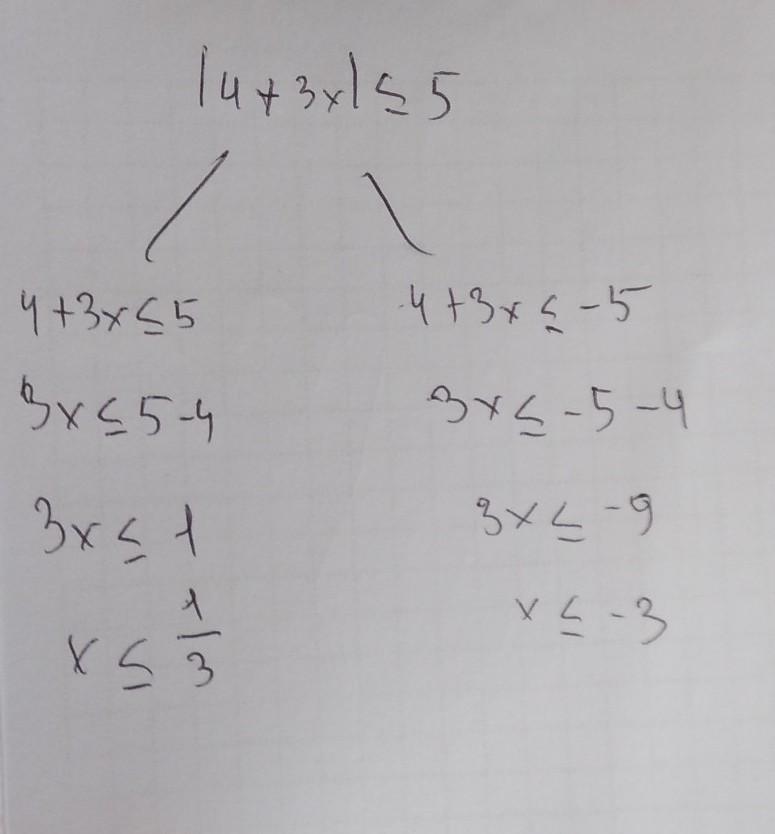 |4+3x| ≤ 5
4+3x ≤ 5
3x ≤ 5-4
3x ≤ 1
x ≤ 1/3
4+3x ≤ -5
3x ≤ -5-4
3x ≤ -9
x ≤ -3